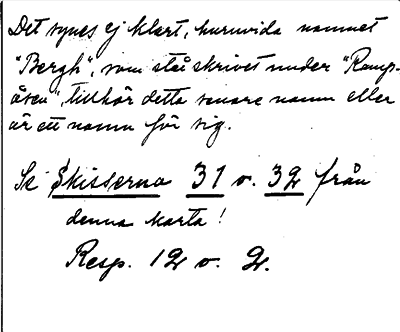 Det synes ej klart, huruvida namnet
"Bergh", som står skrivet under "Ramp-
åsen", tillhör detta senare namn eller
är ett namn för sig.
Se Skisserna 31 o. 32 från
denna karta!
Resp. 12 o. 2.